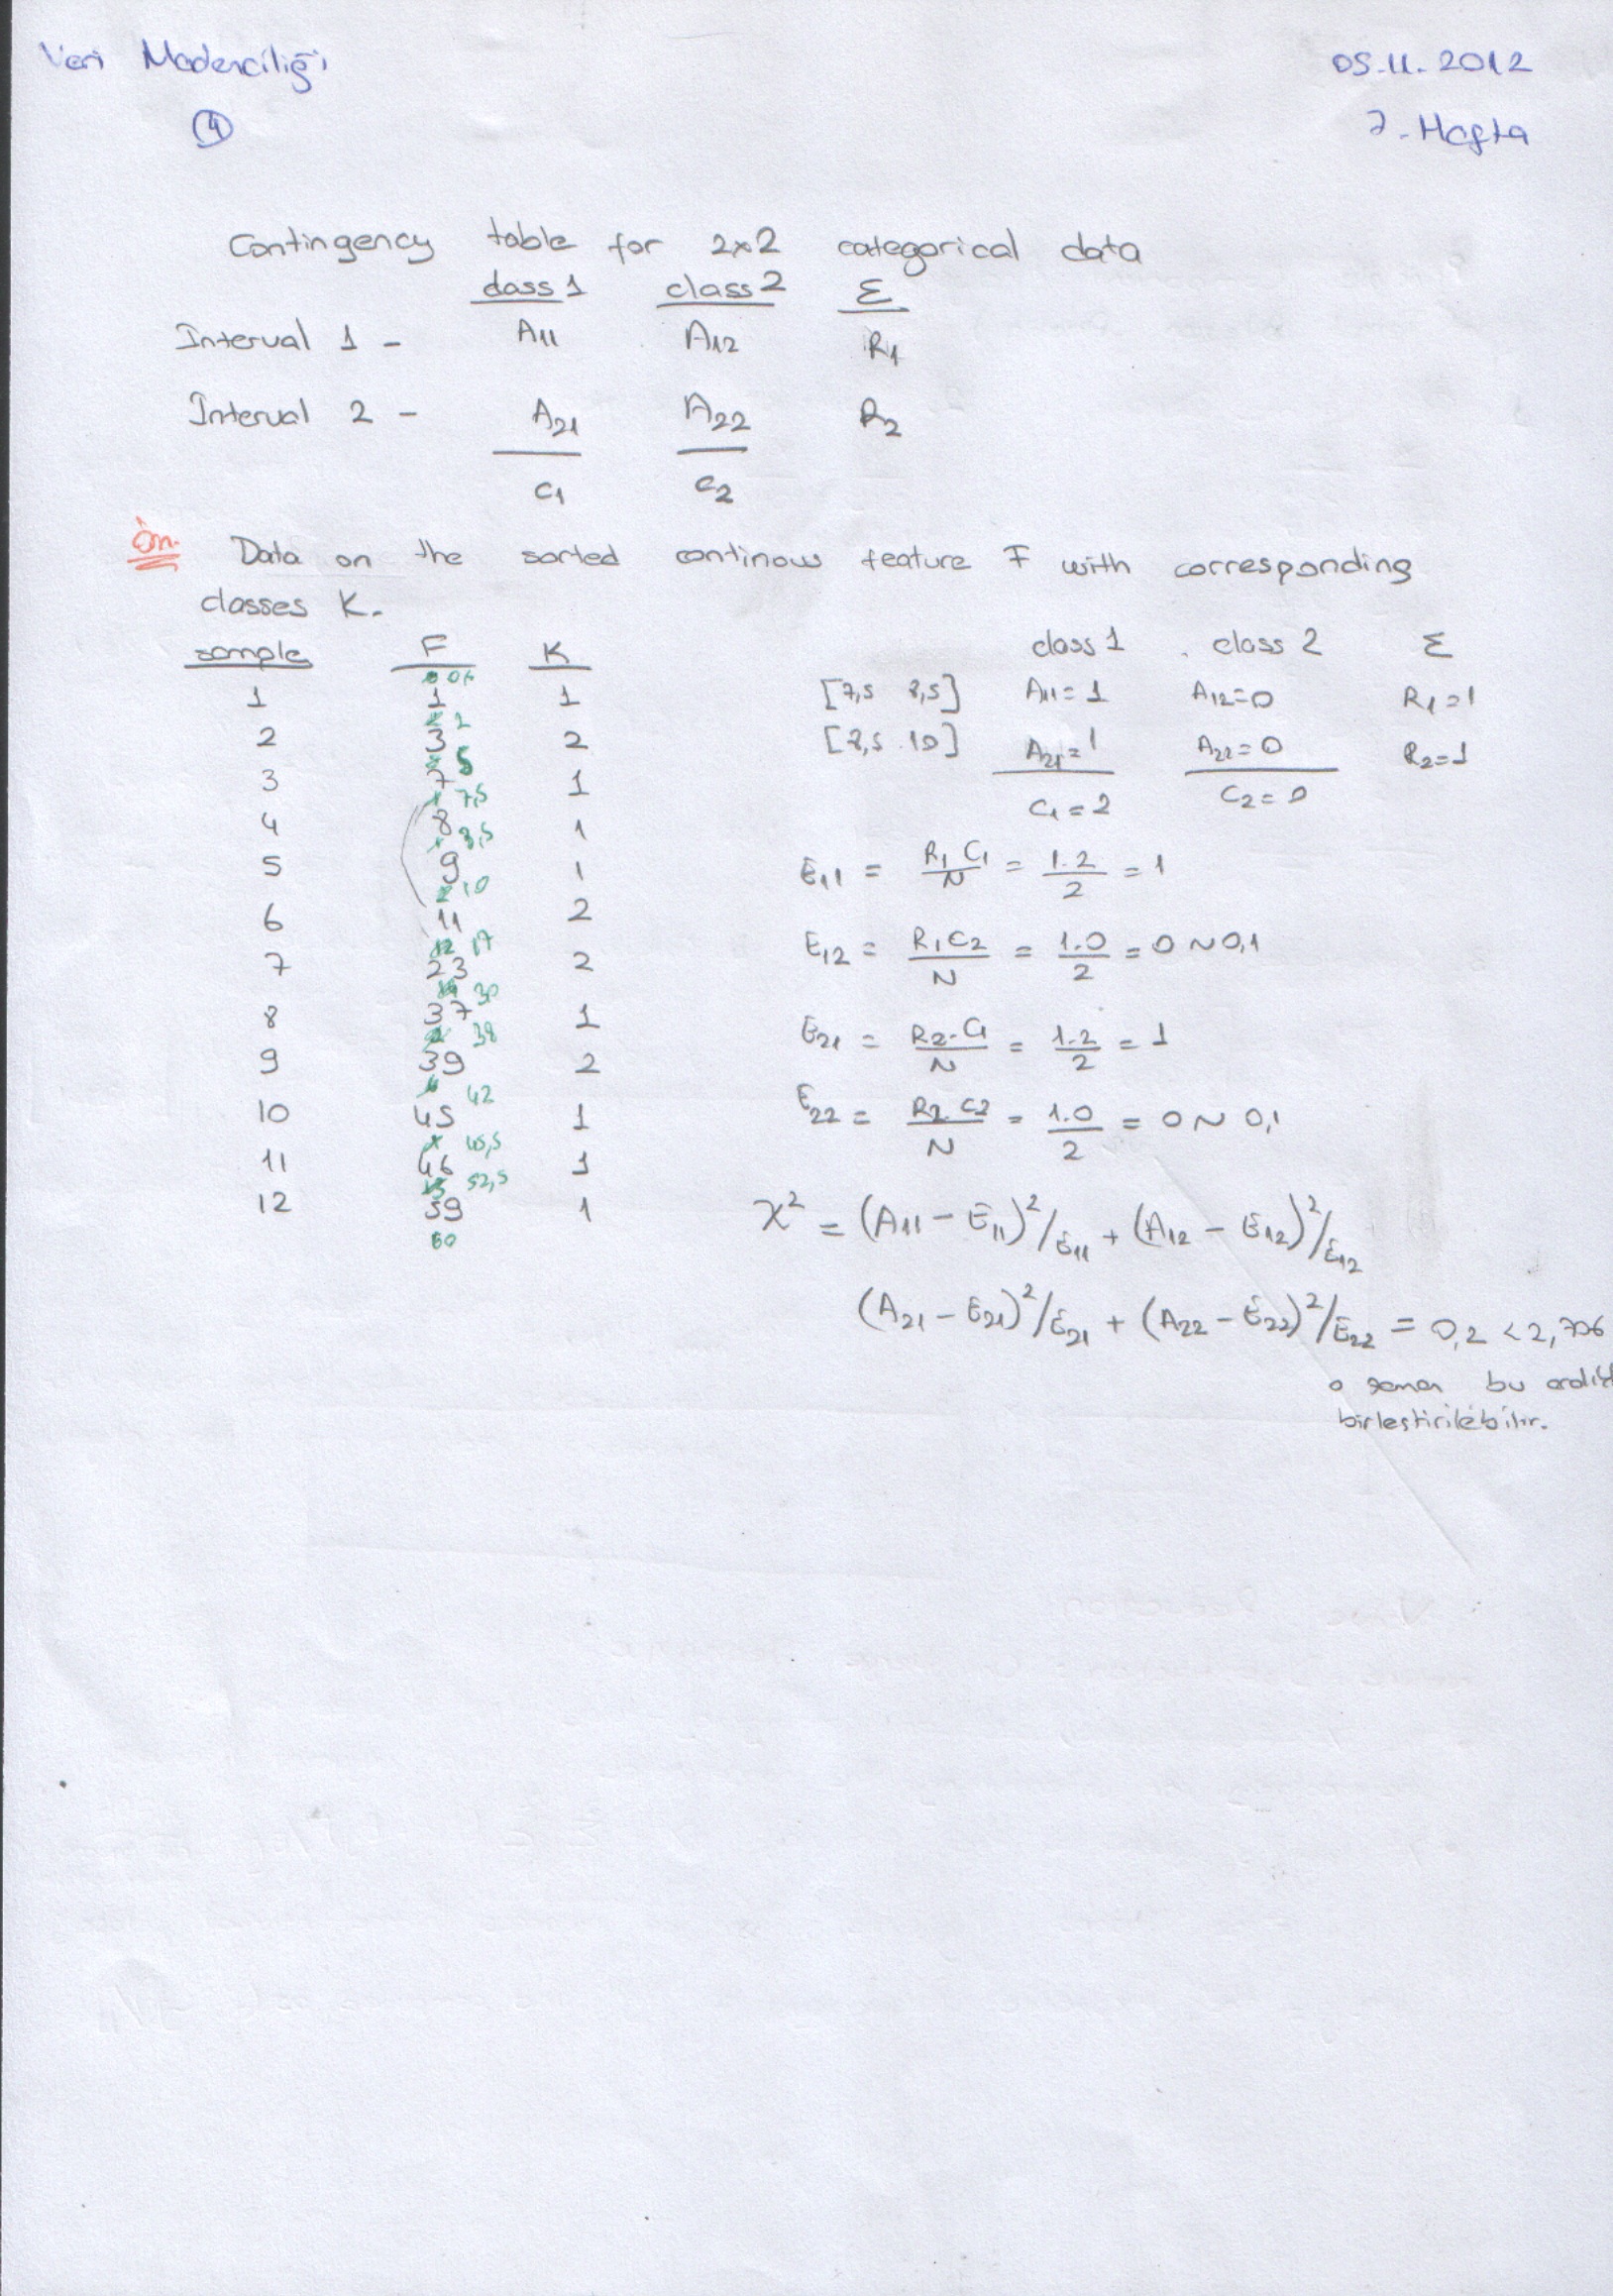 Veri Madenciliği
05.11.2012
④
7. Hafta
Contingency table for 2x2 categorical data
class 1 class 2 Σ
Interval 1 - A11 A12 R1
Interval 2 - A21 A22 R2
C1 C2
Örn. Data on the sorted continous feature F with corresponding
classes K.
sample F K
1 1 1
2
2 3 2
5
3 7 1
7,5
4 8 1
8,5
5 9 1
10
6 11 2
17
7 23 2
30
8 37 1
38
9 39 2
42
10 45 1
45,5
11 46 1
52,5
12 59 1
60
class 1 class 2 Σ
[7,5 8,5] A11 = 1 A12 = 0 R1 = 1
[8,5 10] A21 = 1 A22 = 0 R2 = 1
C1 = 2 C2 = 0
E11 = R1 C1 / N = 1.2 / 2 = 1
E12 = R1 C2 / N = 1.0 / 2 = 0 ~ 0,1
E21 = R2.C1 / N = 1.2 / 2 = 1
E22 = R2.C2 / N = 1.0 / 2 = 0 ~ 0,1
χ² = (A11 - E11)²/E11 + (A12 - E12)²/E12
(A21 - E21)²/E21 + (A22 - E22)²/E22 = 0,2 < 2,706
o zaman bu
birleştirilebilir.